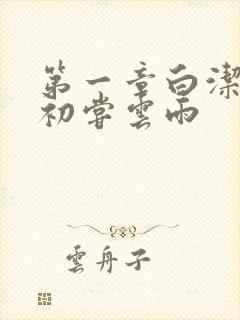 第一章白潔
初嘗雲雨
雲舟子